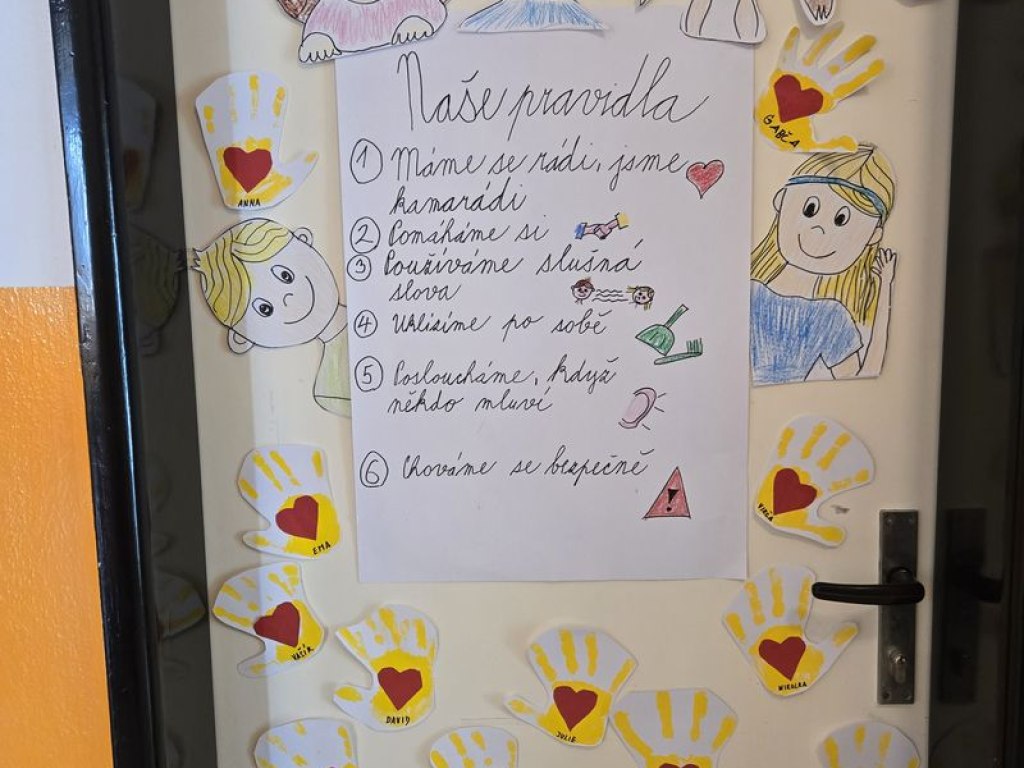 Naše pravidla
① Máme se rádi, jsme
kamarádi
② Pomáháme si
③ Používáme slušná
slova
④ Uklízíme po sobě
⑤ Posloucháme, když
někdo mluví
⑥ Chováme se bezpečně
!
ANNA
GABČA
EMA
VIKČA
VAŠÍK
DAVID
JULIE
NIKOLKA